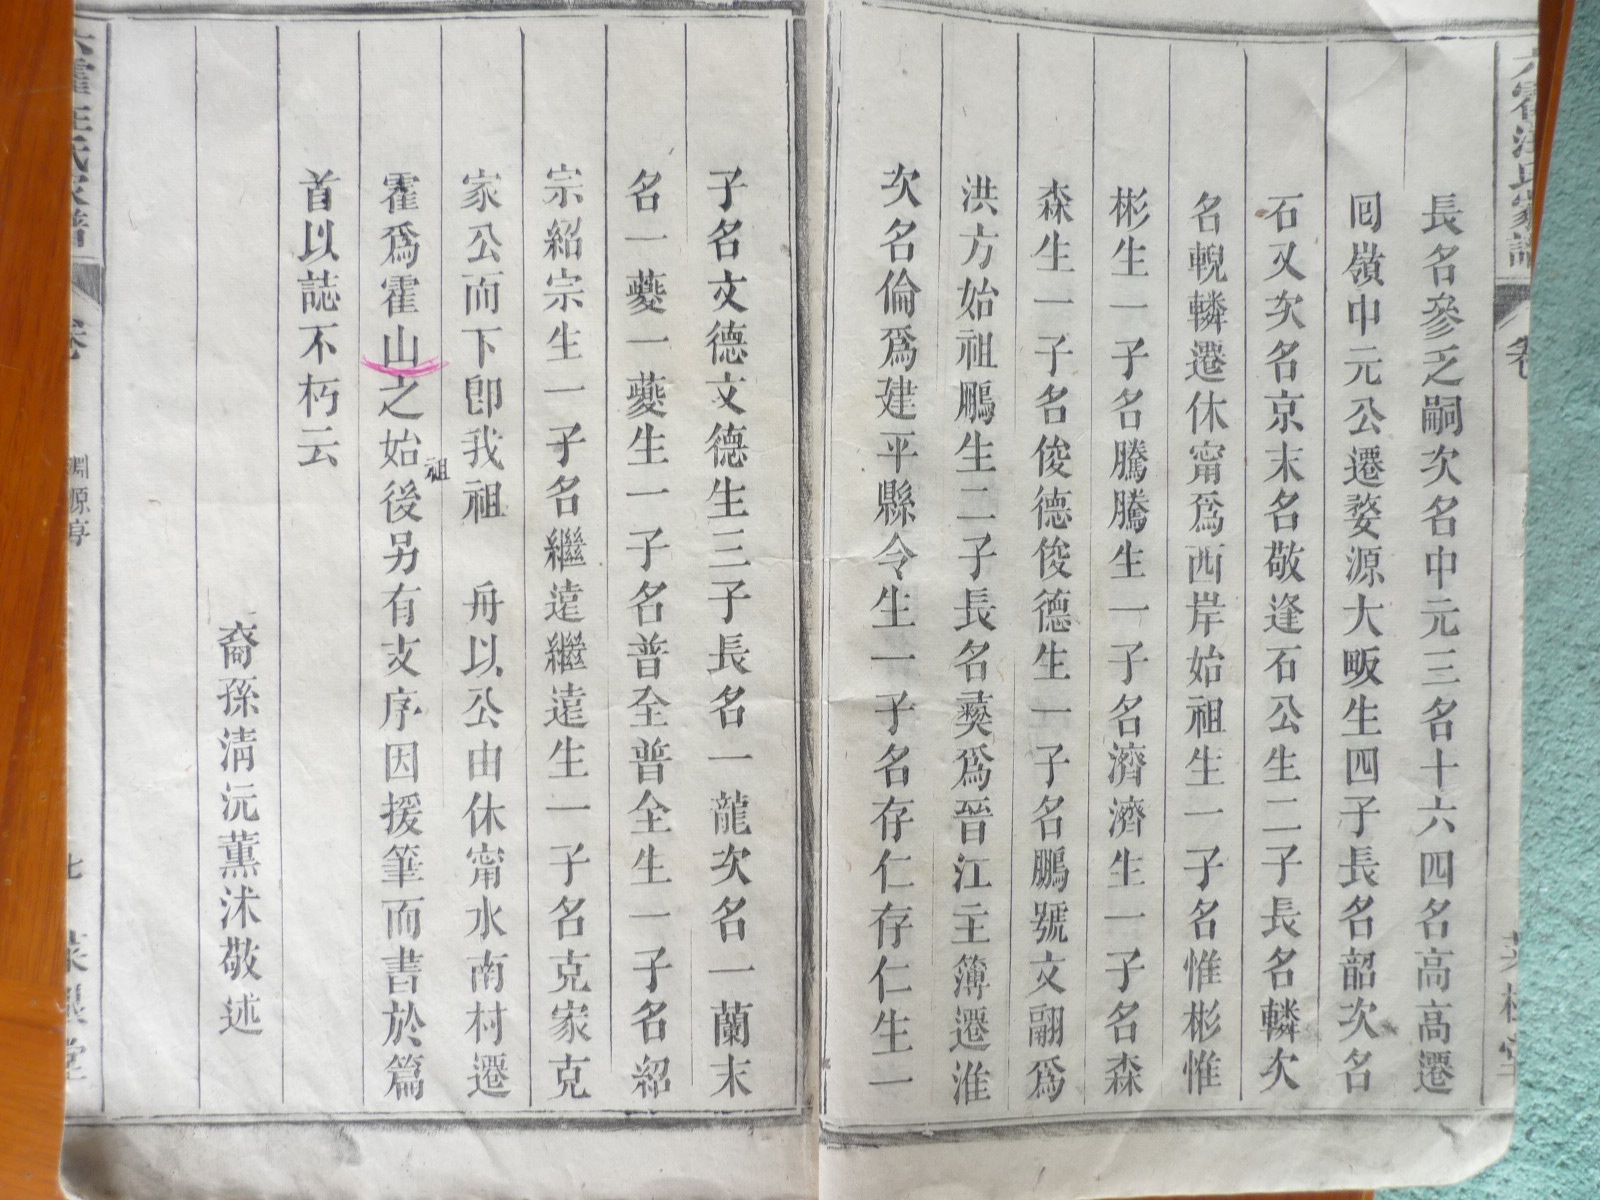 六霍汪氏家譜
長名參乏嗣次名中元三名十六四名高高遷
回嶺中元公遷婺源大畈生四子長名韶次名
石又次名京末名敬逢石公生二子長名轔次
名輗轔遷休甯爲西岸始祖生一子名惟彬惟
彬生一子名騰騰生一子名濟濟生一子名森
森生一子名俊德俊德生一子名鵬號文翮爲
洪方始祖鵬生二子長名彝爲晉江主簿遷淮
次名倫爲建平縣令生一子名存仁存仁生一
子名文德文德生三子長名一龍次名一蘭末
名一夔一夔生一子名普全普全生一子名紹
宗紹宗生一子名繼遠繼遠生一子名克家克
家公而下卽我祖 舟以公由休甯水南村遷
霍爲霍山之始祖後另有支序因援筆而書於篇
首以誌不朽云
裔孫淸沅薰沐敬述
六霍汪氏家譜 卷 淵源序 七